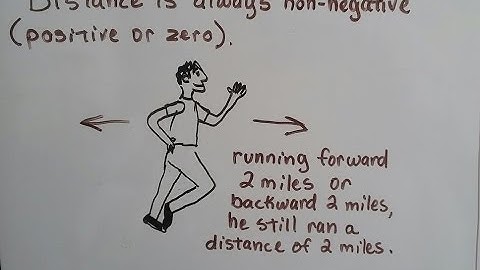 Distance is always non-negative
(positive or zero).
running forward
2 miles or
backward 2 miles,
he still ran a
distance of 2 miles.